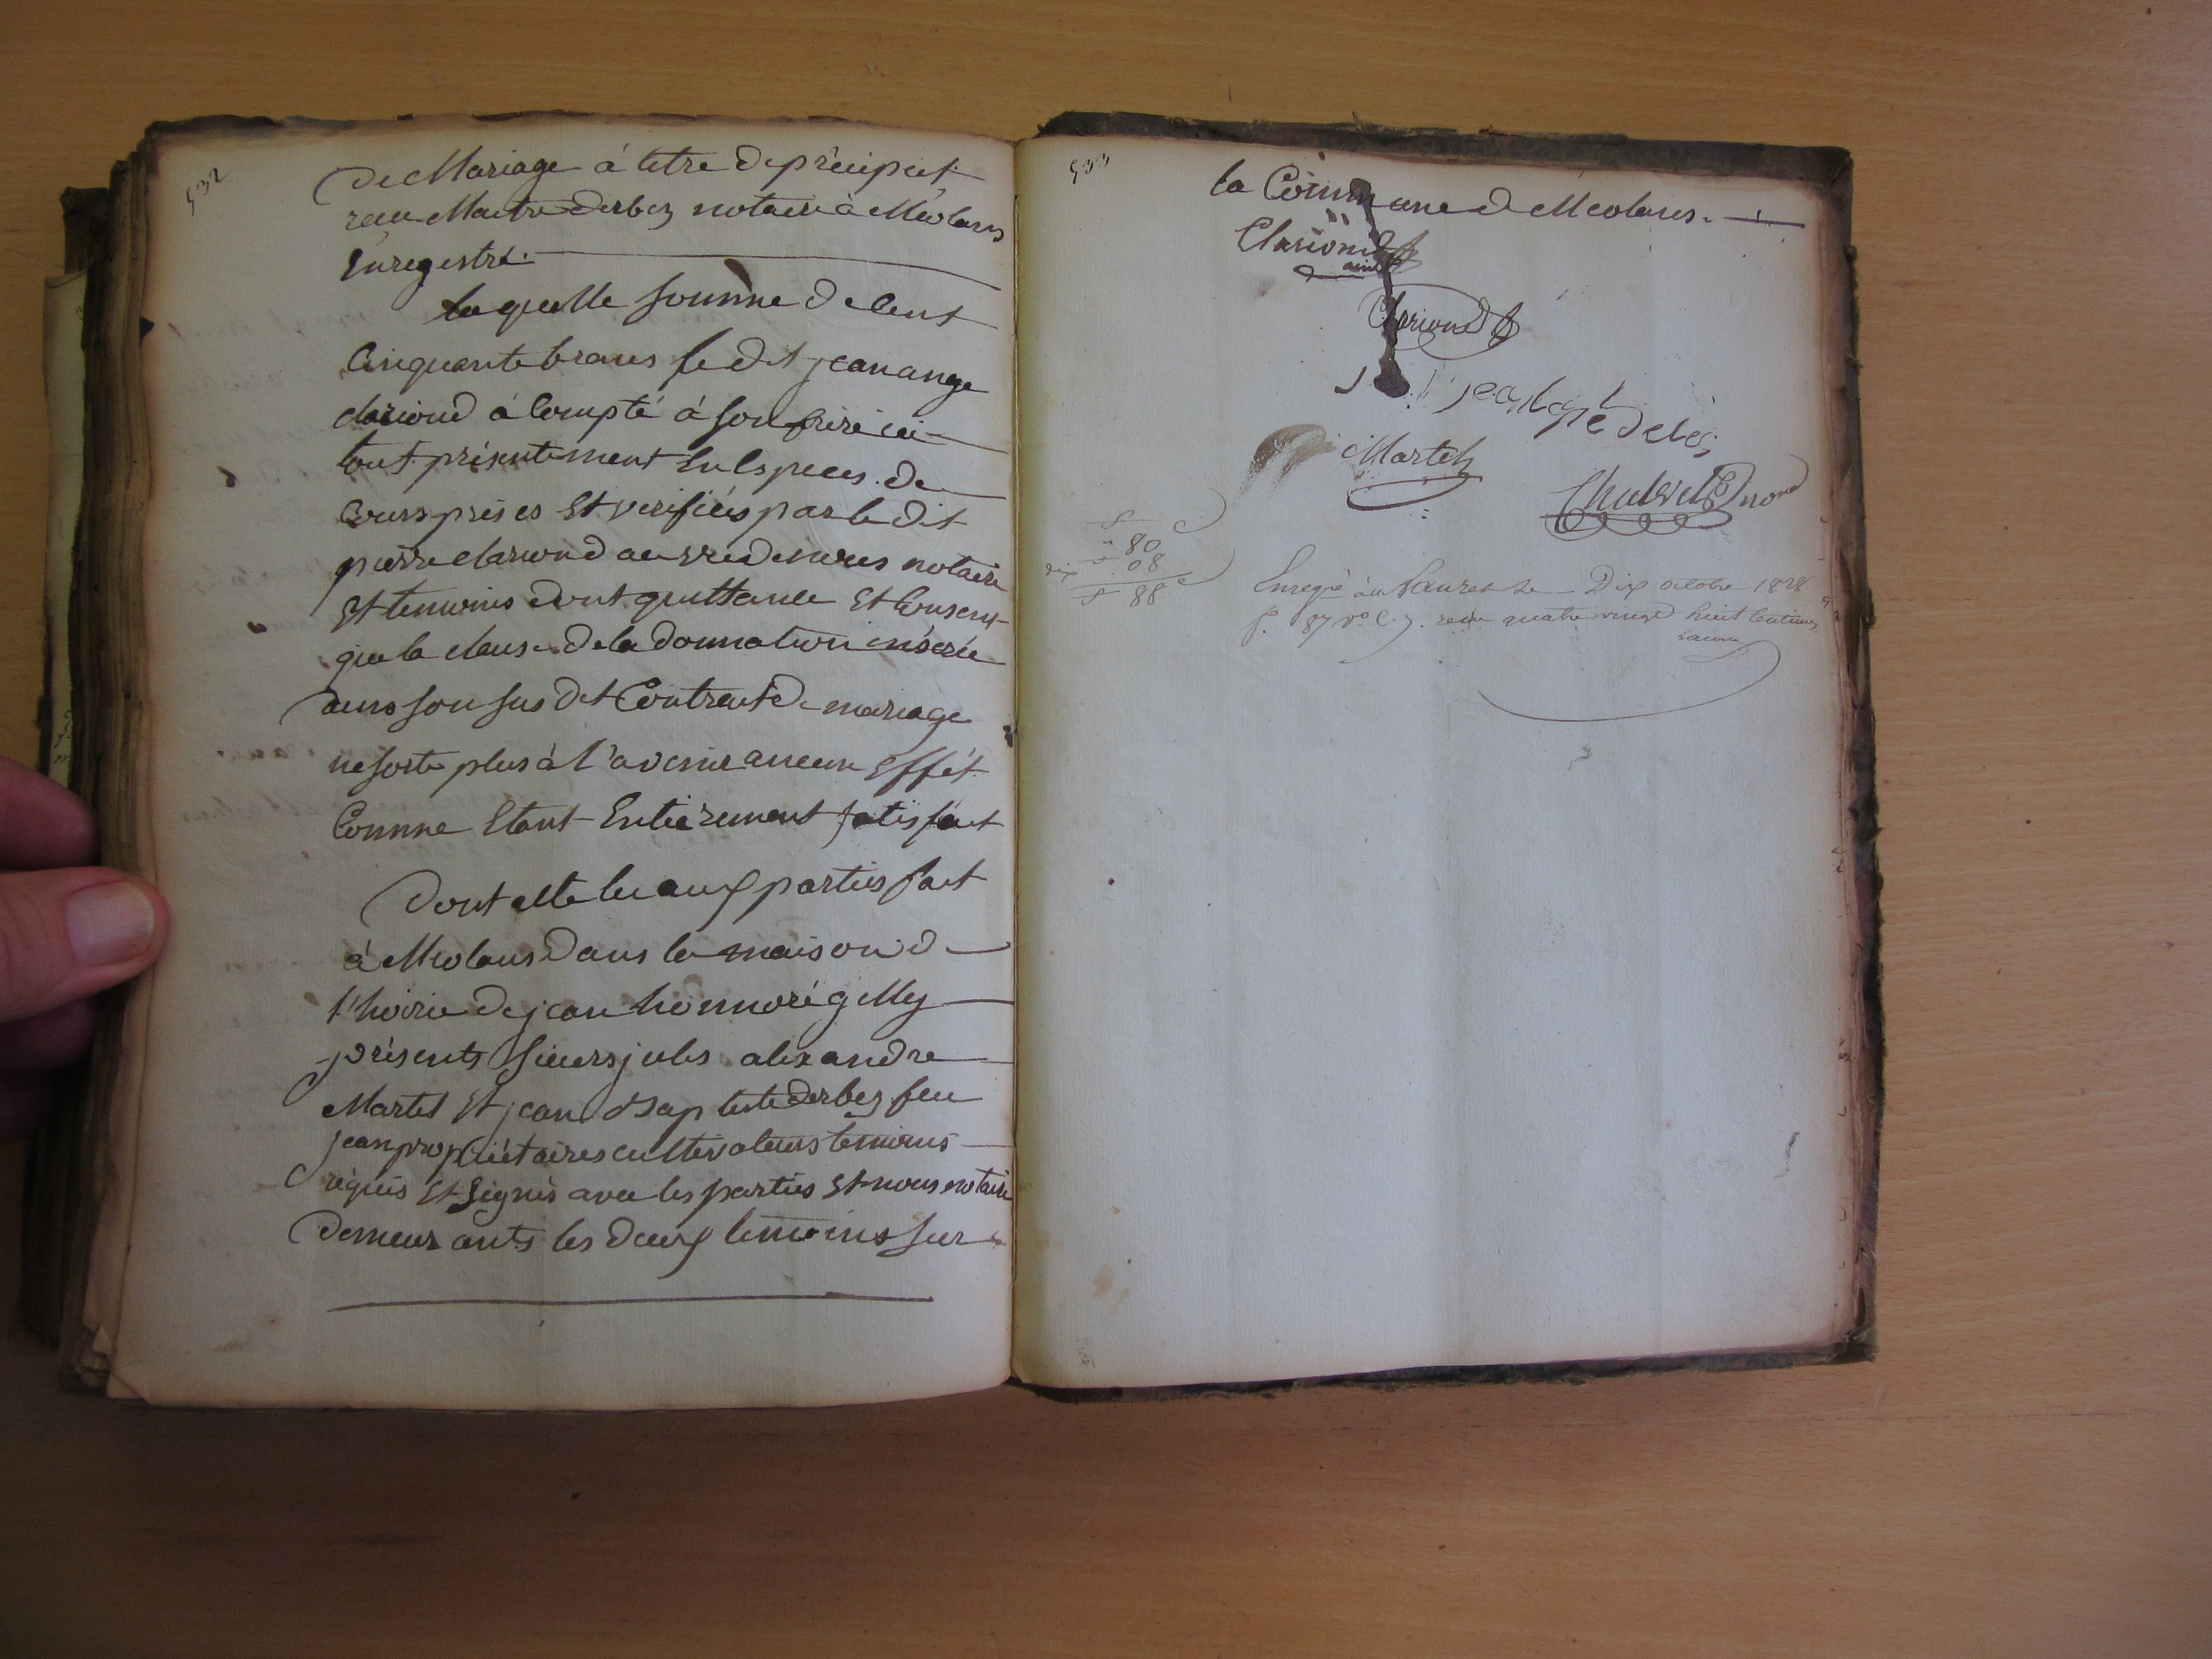 532
de Mariage à titre de préciput
reçu Maitre derbez notaire à Méolans
Enregistré.
la quelle somme de Cent
Cinquante francs le dit jean ange
clariond à Compté à son frère ici
tout présentement En Espèces de
Cours prises Et verifiées par le dit
pierre clariond au vue de nous notaire
Et temoins dont quittance Et Consent
que la clause de la donnation insérée
dans son sus dit Contrat de mariage
ne sorte plus à l'avenir aucun Effét
Comme Etant Entièrement satisfait
dont acte lu aux parties fait
à Meolans dans la maison de
l'hoirie de jean honnoré gilly
présents sieurs jules alexandre
Martel Et jean Baptiste derbez feu
jean propriétaires cultivateurs temoins
réquis Et signés avec les parties Et nous notaire
demeurants les deux temoins sur
533
la Commune de Meolans.
Clariond
ainé
Clariond
jean bapte derbes
Martel
nore
80 c
dix 08
88 c
Enregré à le Dix octobre 1828
f. 87 vo C. 7. reçu quatre vingt huit Centimes